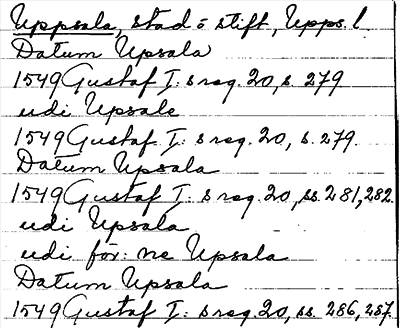 Uppsala, stad o stift, Upps. l.
Datum Upsala
1549 Gustaf I:s reg. 20, s. 279
udi Upsale
1549 Gustaf I:s reg. 20, s. 279.
Datum Upsala
1549 Gustaf I:s reg. 20, ss. 281, 282.
udi Upsala
udi för: ne Upsala
Datum Upsala
1549 Gustaf I:s reg. 20, ss. 286, 287.